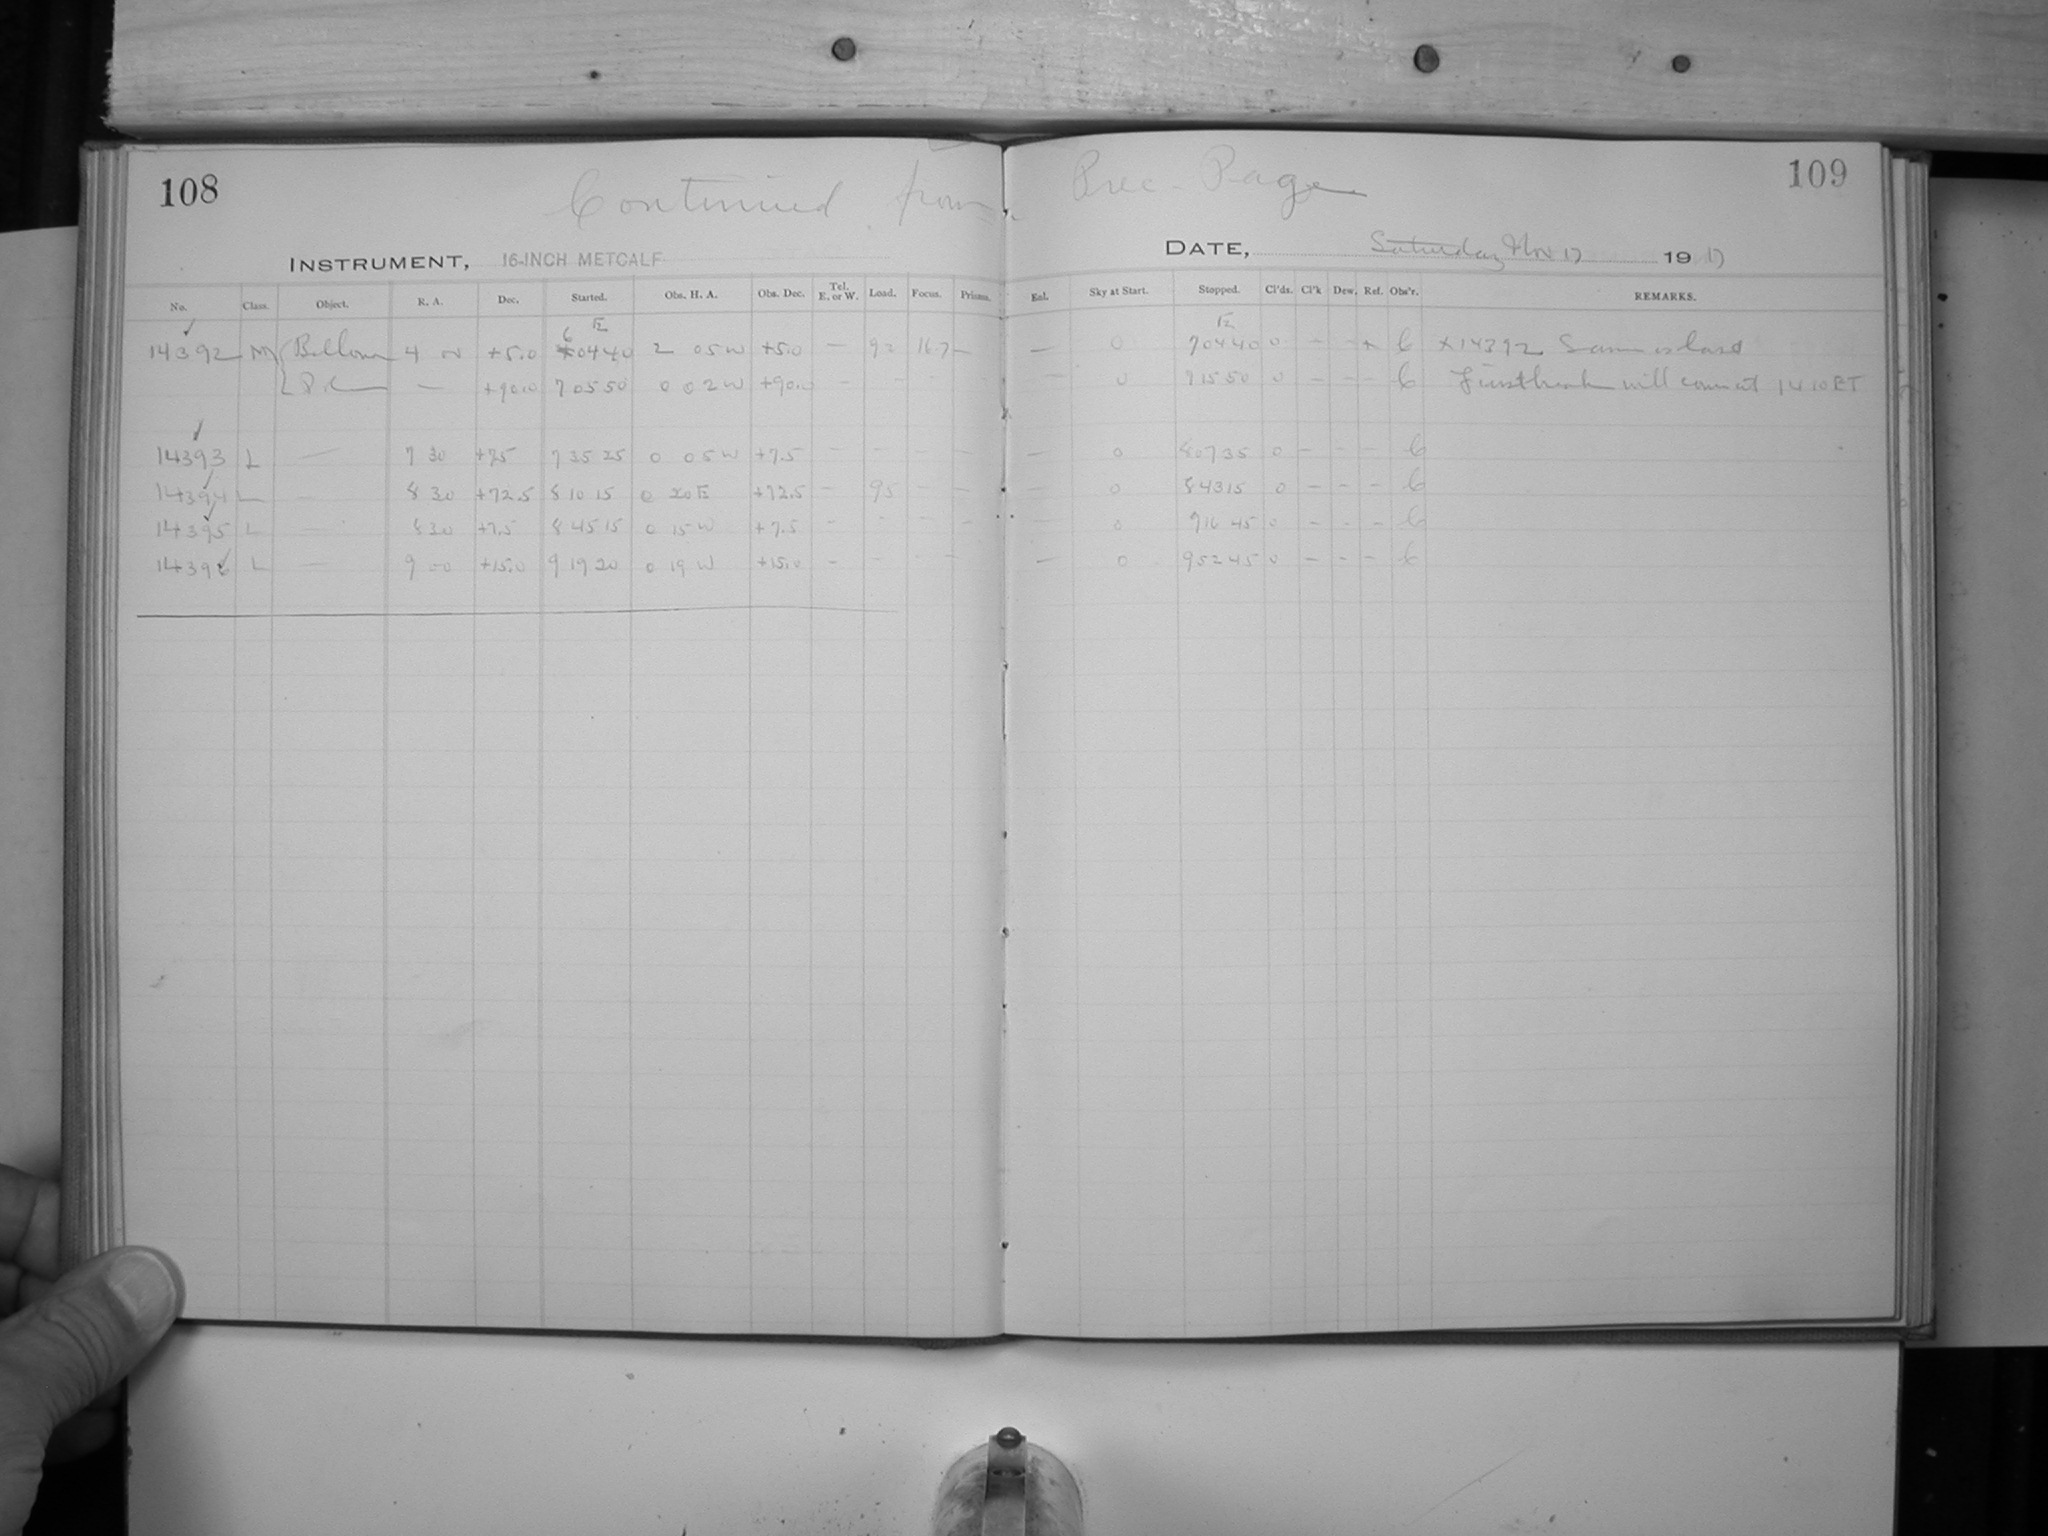 108
Continued from Prec. Page
109
INSTRUMENT, 16-INCH METCALF
DATE, Saturday Nov 17 1917
No. Class. Object. R. A. Dec. Started. Obs. H. A. Obs. Dec. Tel. E. or W. Load. Focus. Prisms. Enl. Sky at Start. Stopped. Cl'ds. Cl'k Dew. Ref. Obs'r. REMARKS.
14392 M 4 +5.0 6 04 40 2 05 W +5.0 — 92 16.7 — — 0 7 04 40 0 - - × 6 ×14392 Same as last
— +90.0 7 05 50 0 02 W +90.0 - — 0 7 15 50 0 - - - 6 will 14 10 ET
14393 L — 7 30 +7.5 7 35 25 0 05 W +7.5 - - - - — 0 8 07 35 0 - - - 6
14394 L — 8 30 +72.5 8 10 15 0 20 E +72.5 - 95 - - — 0 8 43 15 0 - - - 6
14395 L — 8 30 +7.5 8 45 15 0 15 W +7.5 - - - - — 0 9 16 45 0 - - - 6
14396 L — 9 00 +15.0 9 19 20 0 19 W +15.0 - - - - — 0 9 52 45 0 - - - 6